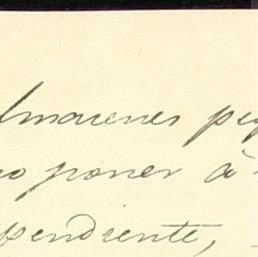 Almacenes peq
no poner á
pendiente,